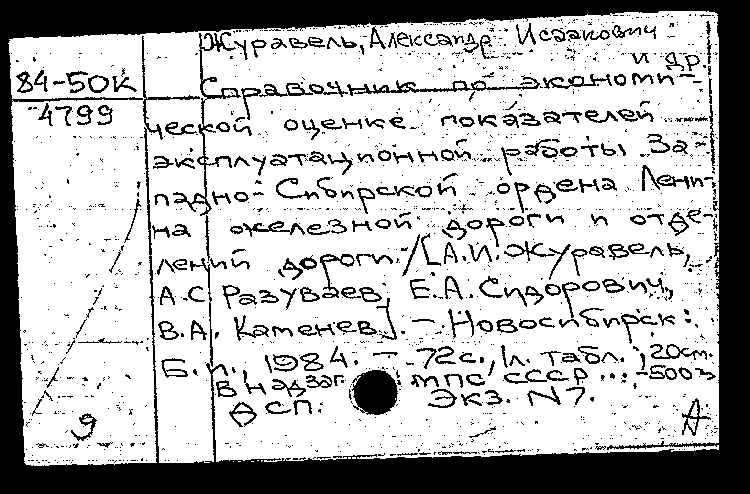 Журавель, Александр Исаакович
и др.
84-50К
4799
Справочник по экономи-
ческой оценке показателей
эксплуатационной работы За-
падно-Сибирской ордена Лени-
на железной дороги и отде-
лений дороги. / [А.И. Журавель,
А.С. Разуваев, Е.А. Сидорович,
В.А. Каменев]. - Новосибирск:
Б.и., 1984. - 72с., 1л. табл.; 20см.
В надзаг. МПС СССР ... - 500э
ДСП. Экз. N 7.
9
А